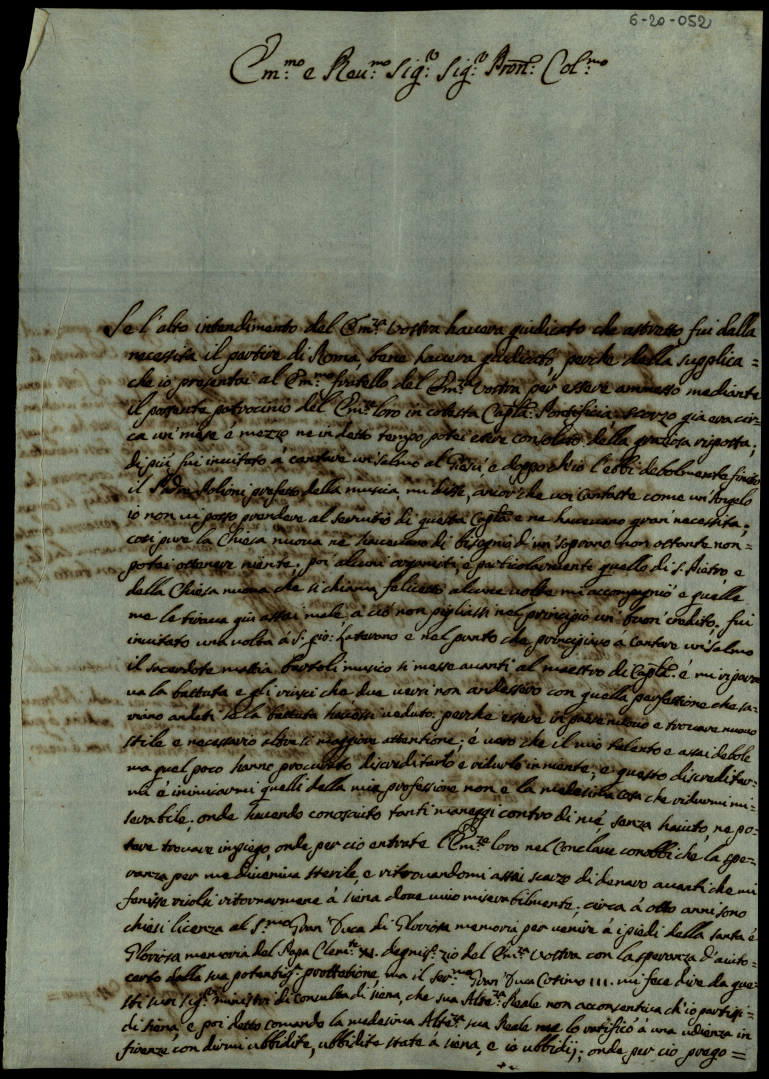 6-20-052
Em.mo e Reu.mo Sig.r Sig.r Pron. Col.mo
Se l'alto intendimento del Em.za Vostra haueva giudicato che astretto fui dalla
necessita il partire di Roma, bene haueva giudicato, perche dalla supplica=
che io presentai al Em.mo fratello del Em.za Vostra per essere ammesso mediante
il potente patrocinio del Em.ze loro in cotesta Capla. Pontificia, scorzo gia era cir=
ca un' mese é mezzo ne in detto tempo potei essere consolato della graziosa risposta;
di piú fui inuitato á cantare un salmo al Giesú e doppo ch'io l'ebbi debolmente finito
il Padre prefetto della musica, mi disse, ancor che uoi cantaste come un'Angelo
io non ui posso prendere al seruitio di questa Capla. e ne haueuano gran' necessita;
cosi pure la Chiesa nuoua ne haueuano di bisogno d'un' soprano non ostante non=
potei ottenere niente. poi alcuni organisti, e particolarmente quello di S. Pietro, e
della Chiesa nuoua che si chiama felicetto alcune uolte mi accompagnó e quelle
me le tiraua giu assai male, a ció non pigliassi nel principio un' buon' credito. fui
inuitato una uolta á S. Gio: Laterano e nel punto che principiauo á Cantare un'salmo
il sacerdote mattia bartoli musico si messe auanti al maestro di Capla. é mi
ua la battuta e gli riusci che due uersi non andassero con quella perfessione che sa=
riano andati se la battuta hauessi ueduto. perche essere in paese nuouo e trouare nuouo
stile e necessario altresi maggiore attentione; é uero che il mio talento e assai debole
ma quel poco hanno procurato discreditarlo e ridurlo in niente, e questo discreditar=
mi é inimicarmi quelli della mia professione non e la medesima cosa che ridurmi mi=
serabile. onde hauendo conosciuto tanti maneggi contro di mé, senza haiuto, ne po=
tere trouare impiego, onde per cio entrate l'Em.ze loro nel Conclaue conobbi che la spe=
ranza per me diueniua sterile, e ritrouandomi assai scarzo di denaro auanti che mi
fenisse risolsi ritornarmene á siena doue uiuo miserabilmente. circa á otto anni sono
chiesi licenza al S.mo Gran' Duca di Gloriosa memoria per uenire á i piedi della santa é
Gloriosa memoria del Papa Clem.te XI. degnis.o zio del Em.za Vostra con la speranza d'aiuto=
certo dalla sua potentis.a prottetione, ma il ser.mo Gran' Duca Cosimo III. mi fece dire da que=
sti suoi sig.ri ministri di consulta di siena, che sua Alte.za Reale non acconsentiua ch'io partissi=
di siena, e poi detto comando la medesima Alte.za sua Reale me lo ratificó á una udienza in
firenze con dirmi ubbidite, ubbidite state á siena, e io ubbidij; onde per cio prego=